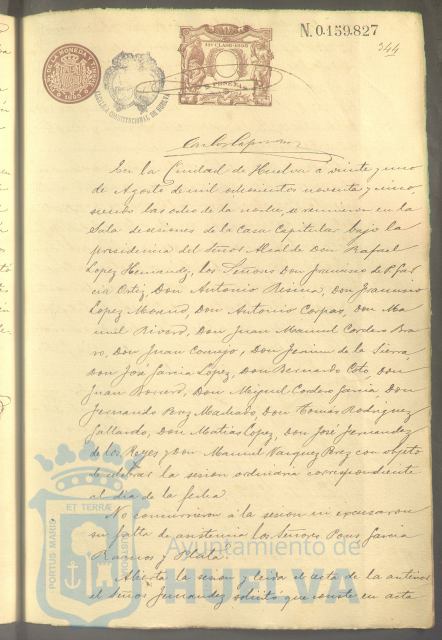 N. 0.159.827
344
11ª CLASE-1895
PESETAS
ALCALDIA CONSTITUCIONAL DE HUELVA
En la Ciudad de Huelva á veinte y uno
de Agosto de mil ochocientos noventa y cinco,
siendo las ocho de la noche, se reunieron en la
Sala de sesiones de la Casa Capitular bajo la
presidencia del Señor Alcalde Don Rafael
Lopez Hernandez, los Señores Don Francisco de P. Gar
cia Ortiz, Don Antonio Resina, Don Francisco
Lopez Moreno, Don Antonio Corpas, Don Ma
nuel Rivero, Don Juan Manuel Cordero Bra
vo, Don Juan Cornejo, Don de la Sierra,
Don José Garcia Lopez, Don Bernardo Coto, Don
Juan Borrero, Don Miguel Cordero Garcia, Don
Fernando Perez Machado, Don Tomás Rodriguez
Gallardo, Don Matias Lopez, Don José Fernandez
de los Reyes y Don Manuel Vazquez Perez con objeto
de celebrar la sesion ordinaria correspondiente
al dia de la fecha.
No concurrieron á la sesion ni excusaron
su falta de asistencia los Señores Pons, Garcia
Ramos y Plata.
Abierta la sesion y leida el acta de la anterior
el Señor Fernandez solicitó que conste en acta
PORTUS MARIS ET TERRÆ CUSTODIA
Ayuntamiento de
HUELVA